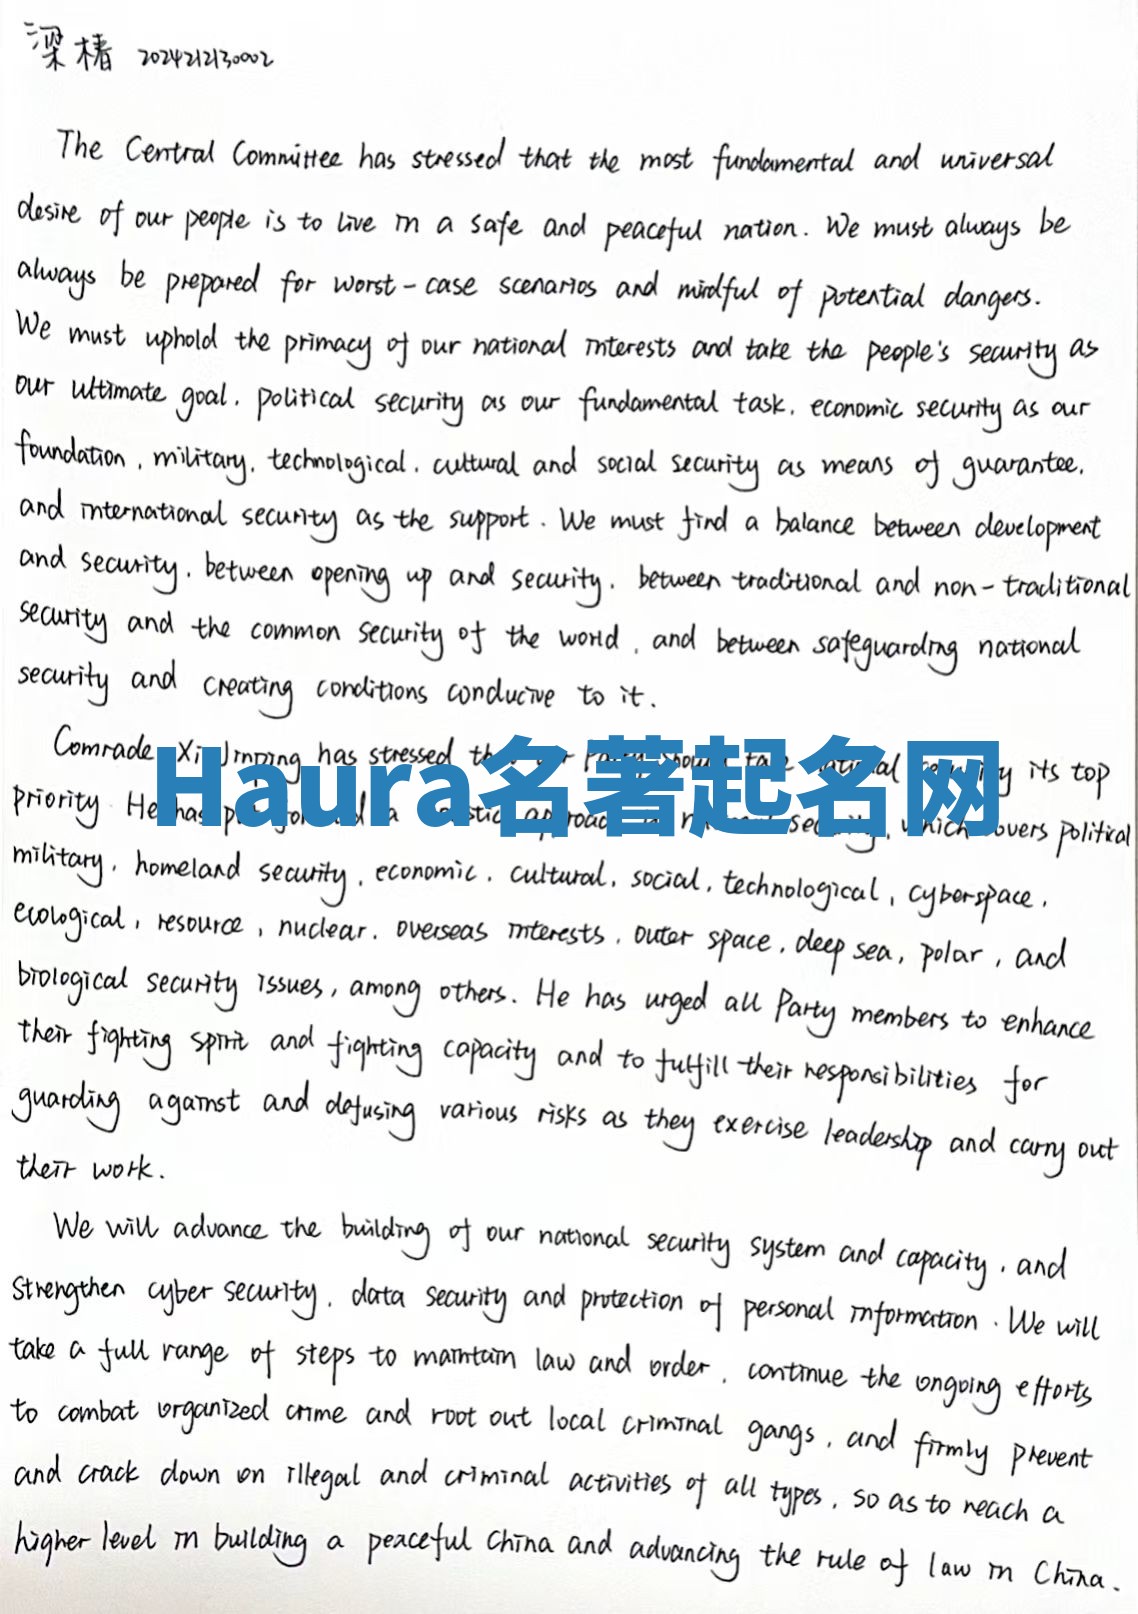 梁椿 2024212130002
The Central Committee has stressed that the most fundamental and universal
desire of our people is to live in a safe and peaceful nation. We must always be
always be prepared for worst-case scenarios and mindful of potential dangers.
We must uphold the primacy of our national interests and take the people's security as
our ultimate goal, political security as our fundamental task, economic security as our
foundation, military, technological, cultural and social security as means of guarantee,
and international security as the support. We must find a balance between development
and security, between opening up and security, between traditional and non-traditional
security and the common security of the world, and between safeguarding national
security and creating conditions conducive to it.
Comrade Xi Jinping has stressed its top
Haura名著起名网
priority. He has a which covers political
military, homeland security, economic, cultural, social, technological, cyberspace,
ecological, resource, nuclear, overseas interests, outer space, deep sea, polar, and
biological security issues, among others. He has urged all Party members to enhance
their fighting spirit and fighting capacity and to fulfill their responsibilities for
guarding against and defusing various risks as they exercise leadership and carry out
their work.
We will advance the building of our national security system and capacity, and
strengthen cyber security, data security and protection of personal information. We will
take a full range of steps to maintain law and order, continue the ongoing efforts
to combat organized crime and root out local criminal gangs, and firmly prevent
and crack down on illegal and criminal activities of all types, so as to reach a
higher level in building a peaceful China and advancing the rule of law in China.